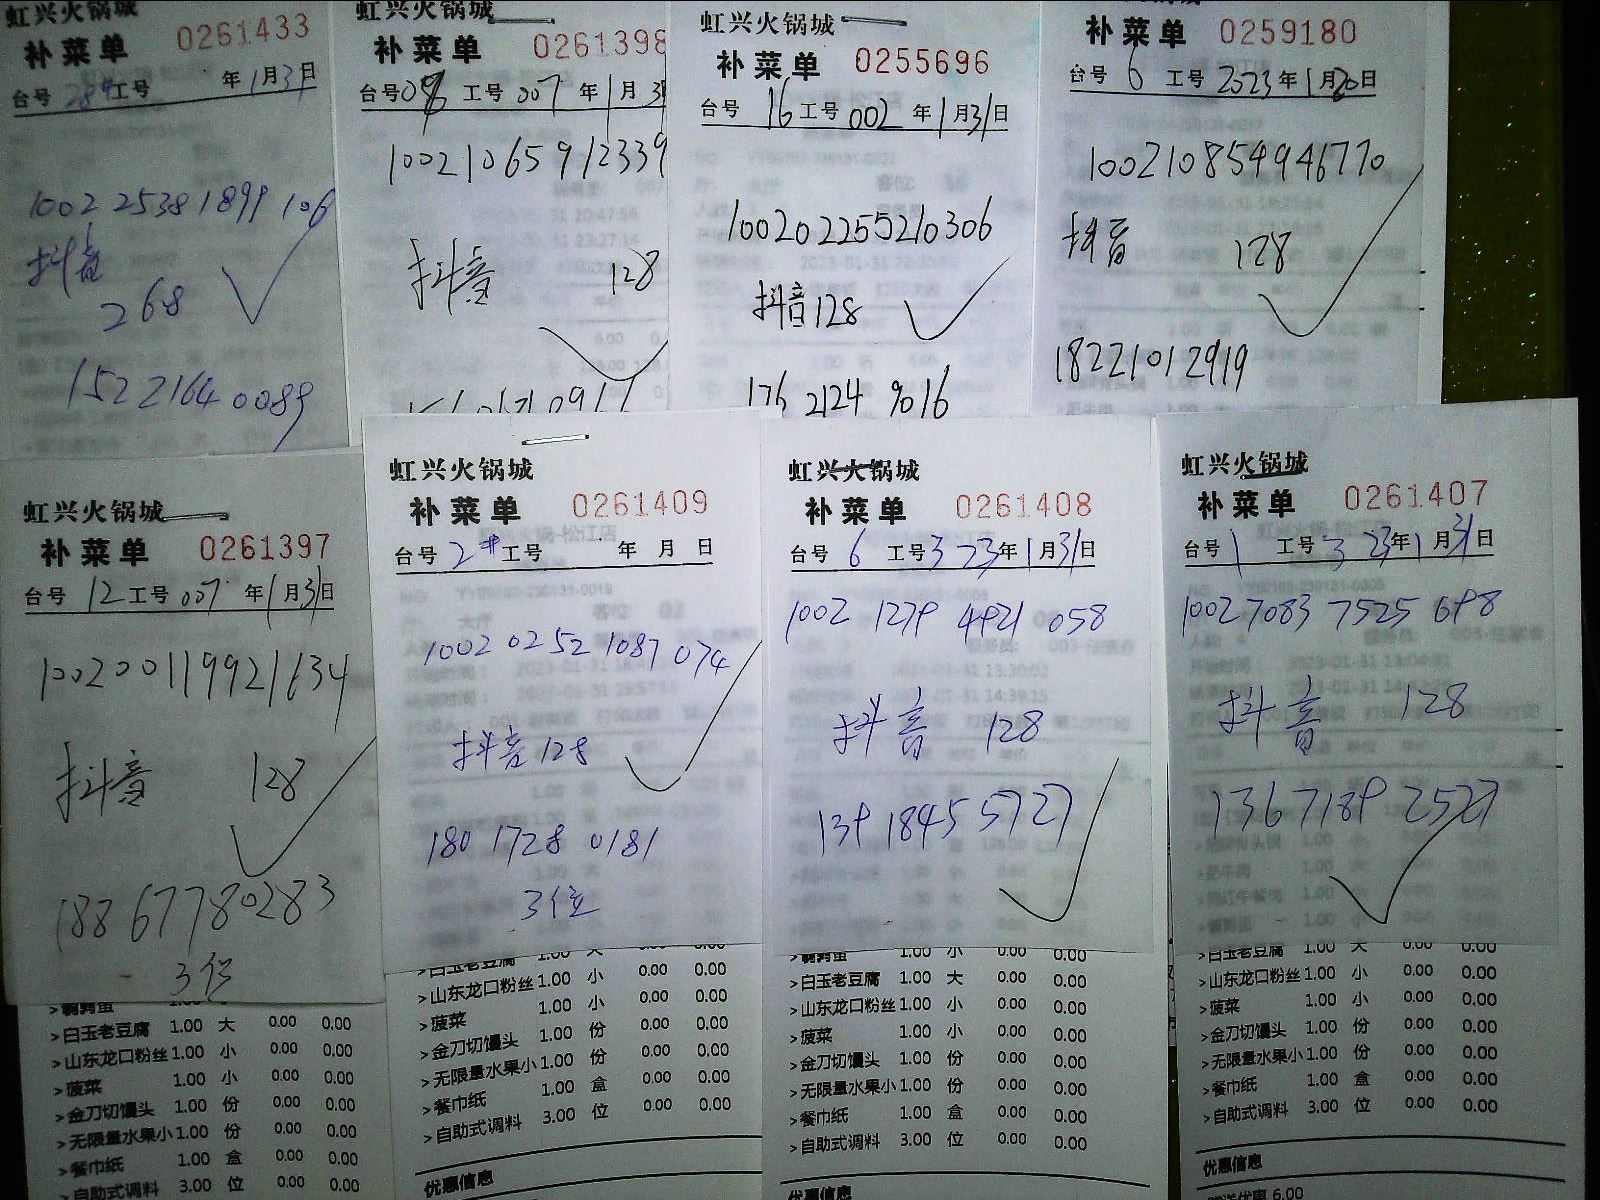 虹兴火锅城
补菜单 0261433
台号 28# 工号 年1月31日
1002 2538 1899 106
抖音
268
1522164 0089
虹兴火锅城
补菜单 0261398
台号08 工号 007 年1月31
10021065912339
抖音 128
虹兴火锅城
补菜单 0255696
台号 16 工号 002 年1月31日
100202255210306
抖音128
176 2124 9016
补菜单 0259180
台号 6 工号 2023年1月20日
100210854946770
抖音 128
18221012919
虹兴火锅城
补菜单 0261397
台号 12 工号 007 年1月31日
100200119921634
抖音 128
18867780283
3位
>白玉老豆腐 1.00 大 0.00 0.00
>山东龙口粉丝 1.00 小 0.00 0.00
>菠菜 1.00 小 0.00 0.00
>金刀切馒头 1.00 份 0.00 0.00
>无限量水果小 1.00 份 0.00 0.00
>餐巾纸 1.00 盒 0.00 0.00
>自助式调料 3.00 位 0.00 0.00
虹兴火锅城
补菜单 0261409
台号 2# 工号 年 月 日
1002 0252 1087 074
抖音128
180 1728 0181
3位
>白玉老豆腐 1.00 大 0.00 0.00
>山东龙口粉丝 1.00 小 0.00 0.00
>菠菜 1.00 小 0.00 0.00
>金刀切馒头 1.00 份 0.00 0.00
>无限量水果小 1.00 份 0.00 0.00
>餐巾纸 1.00 盒 0.00 0.00
>自助式调料 3.00 位 0.00 0.00
优惠信息
虹兴火锅城
补菜单 0261408
台号 6 工号3 23年1月31日
1002 1279 4921 058
抖音 128
139 1845 5727
>鹌鹑蛋 1.00 小 0.00 0.00
>白玉老豆腐 1.00 大 0.00 0.00
>山东龙口粉丝 1.00 小 0.00 0.00
>菠菜 1.00 小 0.00 0.00
>金刀切馒头 1.00 份 0.00 0.00
>无限量水果小 1.00 份 0.00 0.00
>餐巾纸 1.00 盒 0.00 0.00
>自助式调料 3.00 位 0.00 0.00
优惠信息
虹兴火锅城
补菜单 0261407
台号 1 工号 3 23年1月31日
1002 7083 7525 698
抖音 128
136 7189 2527
>白玉老豆腐 1.00 大 0.00 0.00
>山东龙口粉丝 1.00 小 0.00 0.00
>菠菜 1.00 小 0.00 0.00
>金刀切馒头 1.00 份 0.00 0.00
>无限量水果小 1.00 份 0.00 0.00
>餐巾纸 1.00 盒 0.00 0.00
>自助式调料 3.00 位 0.00 0.00
优惠信息